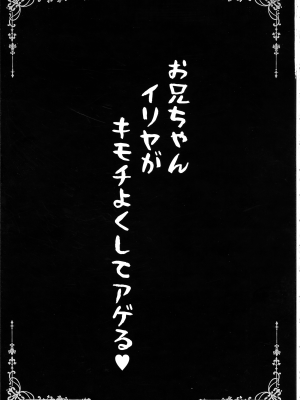 お兄ちゃん
イリヤが
キモチよくしてアゲる♥